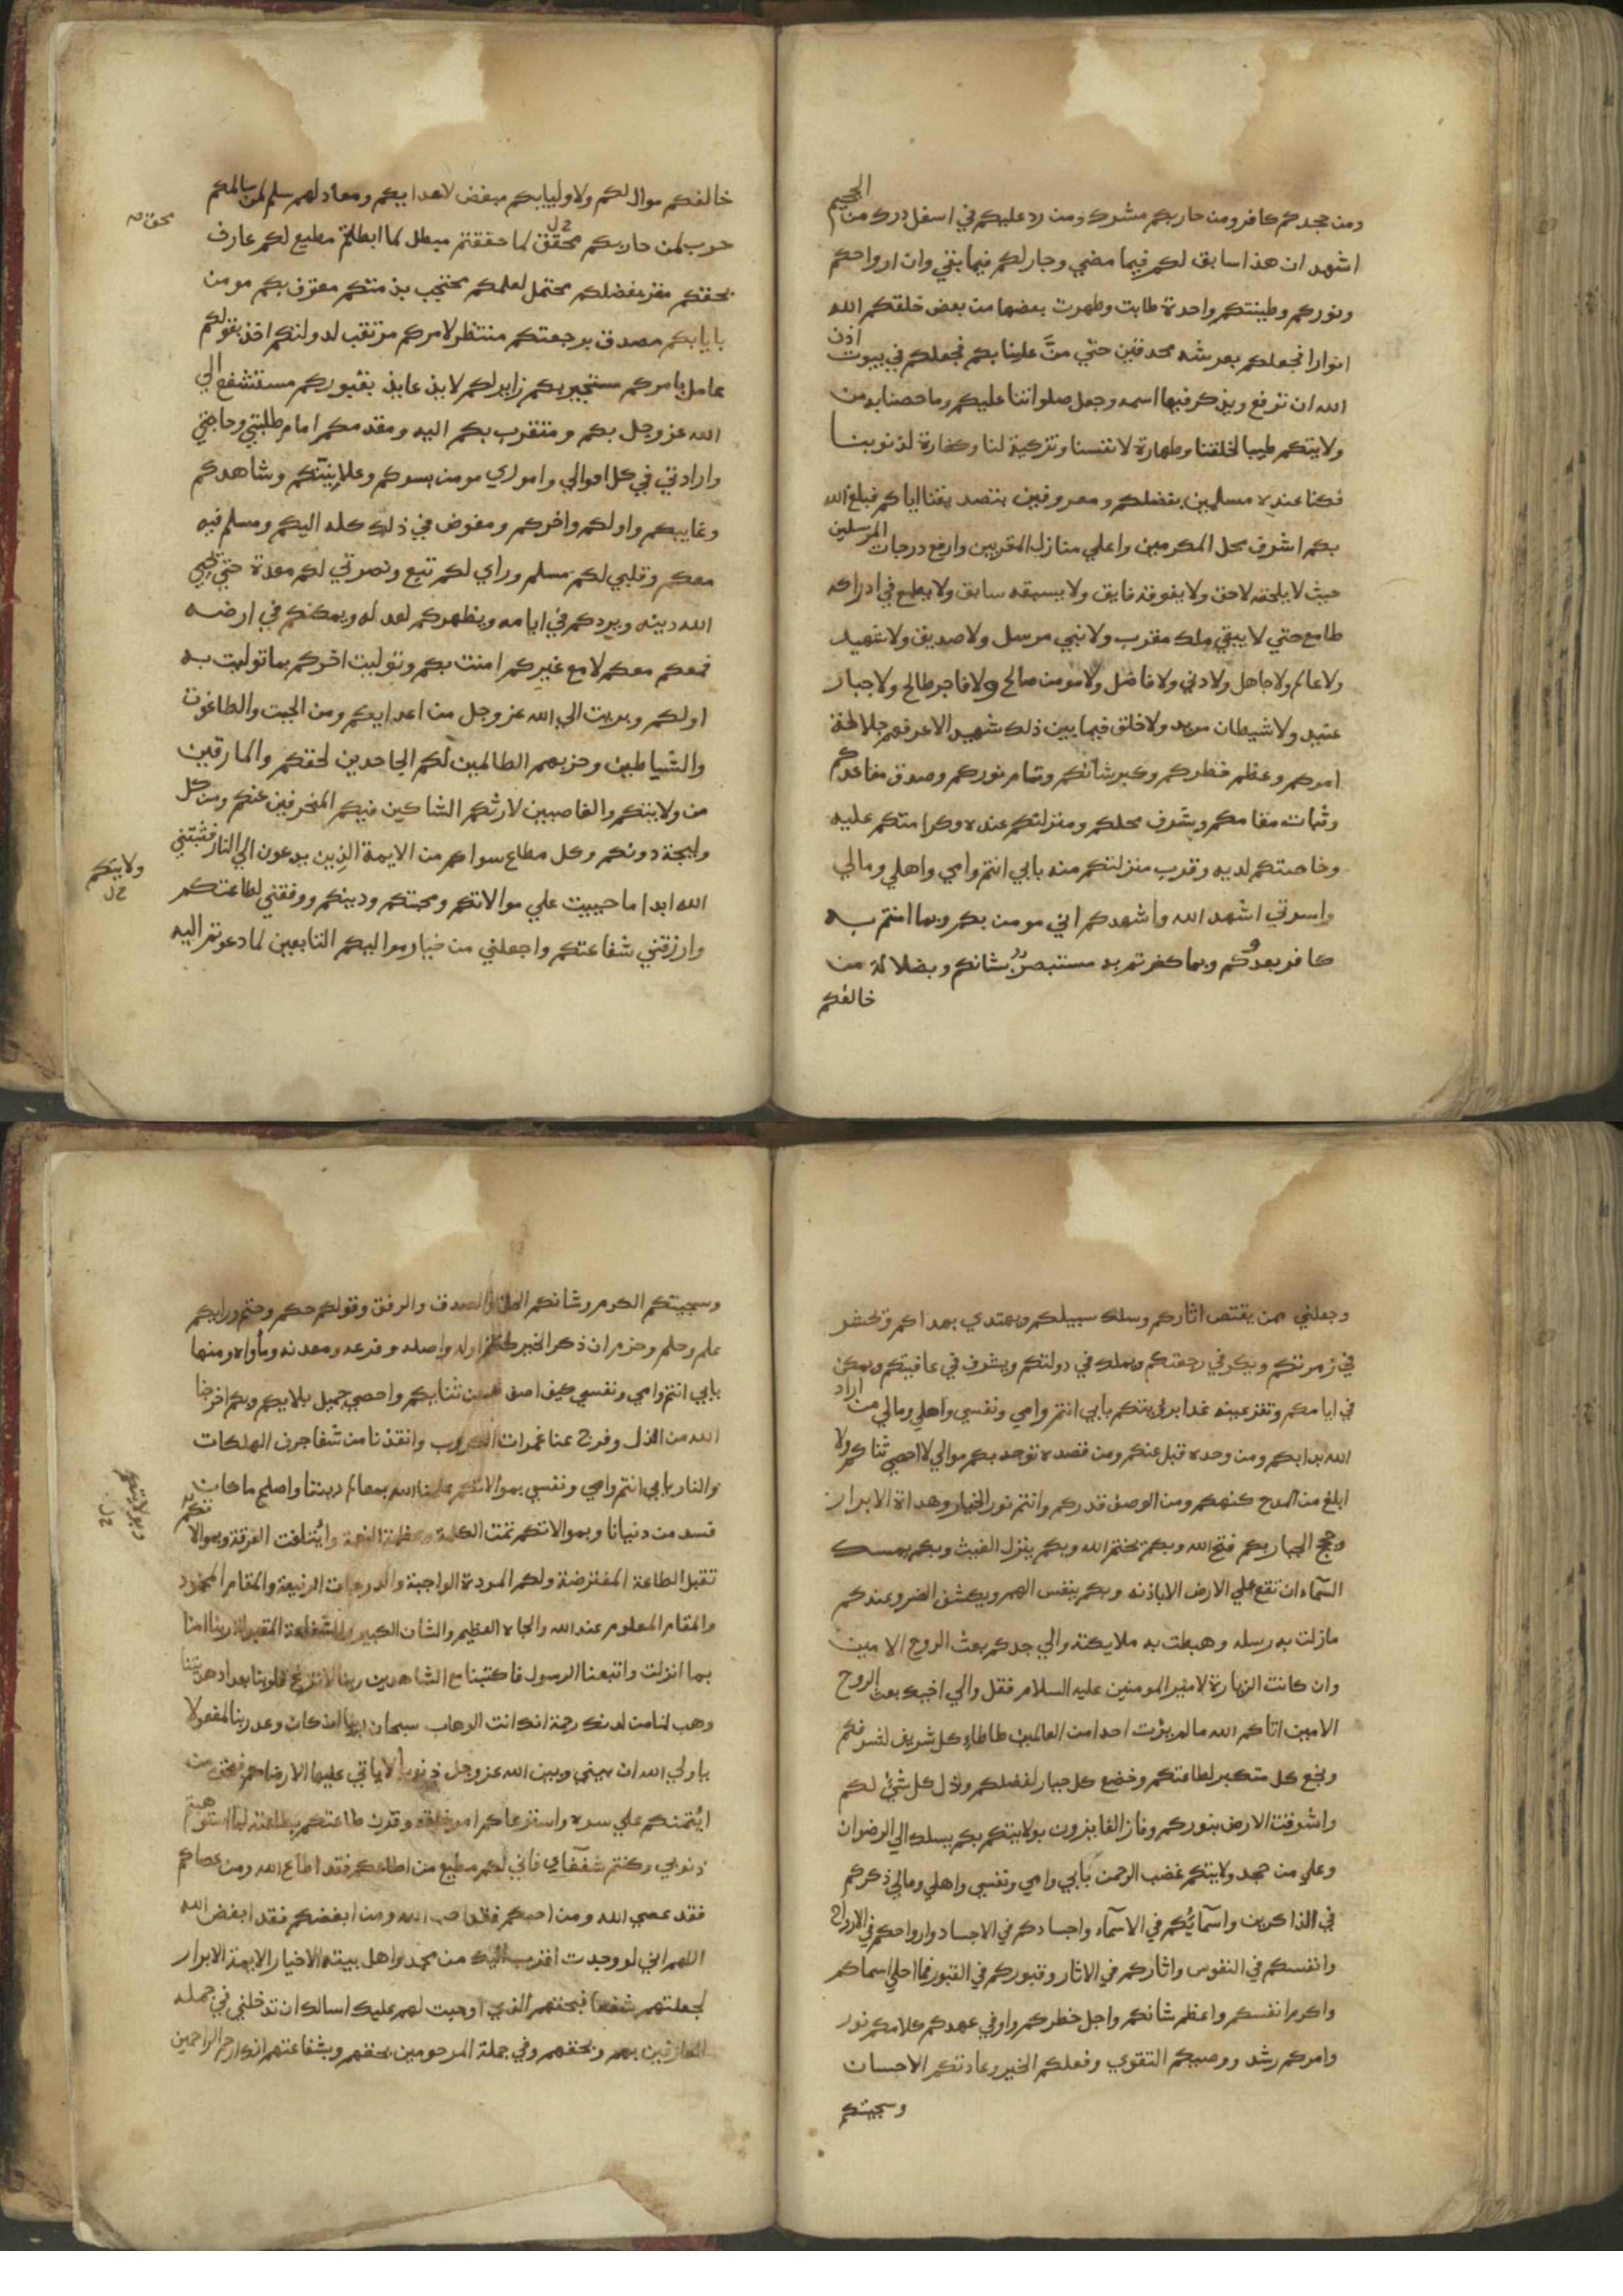 ومن جحدكم كافر ومن حاربكم مشرك ومن رد عليكم في اسفل درك من الجحيم
اشهد ان هذا سابق لكم فيما مضي وجار لكم فيما بقي وان ارواحكم
ونوركم وطينتكم واحدة طابت وطهرت بعضها من بعض خلقكم الله
انوارا فجعلكم بعرشه محدقين حتي منَّ علينا بكم فجعلكم في بيوت اذن
الله ان ترفع ويذكر فيها اسمه وجعل صلواتنا عليكم وما خصنا به من
ولايتكم طيبا لخلقنا وطهارة لانفسنا وتزكية لنا وكفارة لذنوبنا
فكنا عنده مسلمين بفضلكم ومعروفين بتصديقنا اياكم فبلغ الله
بكم اشرف محل المكرمين واعلي منازل المقربين وارفع درجات المرسلين
حيث لا يلحقه لاحق ولا يفوقه فايق ولا يسبقه سابق ولا يطمع في ادراكه
طامع حتي لا يبقي ملك مقرب ولا نبي مرسل ولا صديق ولا شهيد
ولا عالم ولا جاهل ولا دني ولا فاضل ولا مومن صالح ولا فاجر طالح ولا جبار
عنيد ولا شيطان مريد ولا خلق فيما بين ذلك شهيد الا عرفهم جلالة
امركم وعظم خطركم وكبر شانكم وتمام نوركم وصدق مقاعدكم
وثبات مقامكم وشرف محلكم ومنزلتكم عنده وكرامتكم عليه
وخاصتكم لديه وقرب منزلتكم منه بابي انتم وامي واهلي ومالي
واسرتي اشهد الله واشهدكم اني مومن بكم وبما امنتم به
كافر بعدوكم وبما كفرتم به مستبصر بشانكم وبضلالة من
خالفكم
خالفكم موال لكم ولاوليايكم مبغض لاعدايكم ومعاد لهم سلم لمن سالمكم
حرب لمن حاربكم محقق لما حققتم مبطل لما ابطلتم مطيع لكم عارف
بحقكم مقر بفضلكم محتمل لعلمكم محتجب بذمتكم معترف بكم مومن
بايابكم مصدق برجعتكم منتظر لامركم مرتقب لدولتكم اخذ بقولكم
عامل بامركم مستجير بكم زاير لكم لايذ عايذ بقبوركم مستشفع الي
الله عز وجل بكم ومتقرب بكم اليه ومقدمكم امام طلبتي وحاجتي
وارادتي في كل احوالي واموري مومن بسركم وعلانيتكم وشاهدكم
وغايبكم واولكم واخركم ومفوض في ذلك كله اليكم ومسلم فيه
معكم وقلبي لكم مسلم وراي لكم تبع ونصرتي لكم معدة حتي يحيي
الله دينه ويردكم في ايامه ويظهركم لعدله ويمكنكم في ارضه
فمعكم معكم لا مع غيركم امنت بكم وتوليت اخركم بما توليت به
اولكم وبريت الي الله عز وجل من اعدايكم ومن الجبت والطاغوت
والشياطين وحزبهم الظالمين لكم الجاحدين لحقكم والمارقين
من ولايتكم والغاصبين لارثكم الشاكين فيكم المنحرفين عنكم ومن كل
وليجة دونكم وكل مطاع سواكم من الايمة الذين يدعون الي النار فثبتني
ولايتكم
الله ابدا ما حييت علي موالاتكم ومحبتكم ودينكم ووفقني لطاعتكم
وارزقني شفاعتكم واجعلني من خيار مواليكم التابعين لما دعوتم اليه
وجعلني ممن يقتص اثاركم وسلك سبيلكم ويهتدي بهداكم ويحشر
في زمرتكم ويكر في رجعتكم ويملك في دولتكم ويشرف في عافيتكم ويمكن
في ايامكم وتقر عينه غدا برؤيتكم بابي انتم وامي ونفسي واهلي ومالي من اراد
الله بدا بكم ومن وحده قبل عنكم ومن قصده توجه بكم موالي لا احصي ثناكم ولا
ابلغ من المدح كنهكم ومن الوصف قدركم وانتم نور الاخيار وهداة الابرار
وحجج الجبار بكم فتح الله وبكم يختم الله وبكم ينزل الغيث وبكم يمسك
السماء ان تقع علي الارض الا باذنه وبكم ينفس الهم ويكشف الضر وعندكم
مانزلت به رسله وهبطت به ملايكته والي جدكم بعث الروح الامين
وان كانت الزيارة لامير المومنين عليه السلام فقل والي اخيك بعث الروح
الامين اتاكم الله ما لم يؤت احدا من العالمين طاطا كل شريف لشرفكم
وبخع كل متكبر لطاعتكم وخضع كل جبار لفضلكم وذل كل شئ لكم
واشرقت الارض بنوركم وفاز الفايزون بولايتكم بكم يسلك الي الرضوان
وعلي من جحد ولايتكم غضب الرحمن بابي وامي ونفسي واهلي ومالي ذكركم
في الذاكرين واسمآئكم في الاسمآء واجسادكم في الاجساد وارواحكم في الارواح
وانفسكم في النفوس واثاركم في الاثار وقبوركم في القبور فما احلي اسماكم
واكرم انفسكم واعظم شانكم واجل خطركم واوفي عهدكم كلامكم نور
وامركم رشد ووصيتكم التقوي وفعلكم الخير وعادتكم الاحسان
وسجيتكم
وسجيتكم الكرم وشانكم الحق والصدق والرفق وقولكم حكم وحتم ورايكم
علم وحلم وحزم ان ذكر الخير كنتم اوله واصله وفرعه ومعدنه وماواه ومنتها
بابي انتم وامي ونفسي كيف اصف حسن ثنايكم واحصي جميل بلايكم وبكم اخرجنا
الله من الذل وفرج عنا غمرات الكروب وانقذنا من شفا جرف الهلكات
والنار بابي انتم وامي ونفسي بموالاتكم علمنا الله معالم ديننا واصلح ما كان
فسد من دنيانا وبموالاتكم تمت الكلمة وعظمة النعمة وايتلفت الفرقة وبموالاتكم
تقبل الطاعة المفترضة ولكم المودة الواجبة والدرجات الرفيعة والمقام المحمود
والمقام المعلوم عند الله والجاه العظيم والشان الكبير والشفاعة المقبولة ربنا امنا
بما انزلت واتبعنا الرسول فاكتبنا مع الشاهدين ربنا لا تزغ قلوبنا بعد اذ هديتنا
وهب لنا من لدنك رحمة انك انت الوهاب سبحان ربنا ان كان وعد ربنا لمفعولا
يا ولي الله ان بيني وبين الله عز وجل ذنوبا لا ياتي عليها الا رضاكم فبحق من
ايتمنكم علي سره واسترعاكم امر خلقه وقرن طاعتكم بطاعته لما استوهبتم
ذنوبي وكنتم شفعاي فاني لكم مطيع من اطاعكم فقد اطاع الله ومن عصاكم
فقد عصي الله ومن احبكم فقد احب الله ومن ابغضكم فقد ابغض الله
اللهم اني لو وجدت اقرب اليك من محمد واهل بيته الاخيار الايمة الابرار
لجعلتهم شفعا فبحقهم الذي اوجبت لهم عليك اسالك ان تدخلني في جملة
العارفين بهم وبحقهم وفي جملة المرحومين بحقهم وبشفاعتهم انك ارحم الراحمين